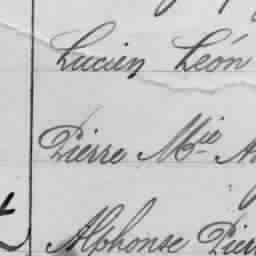 Lucien Léon
Pierre Mie
Alphonse